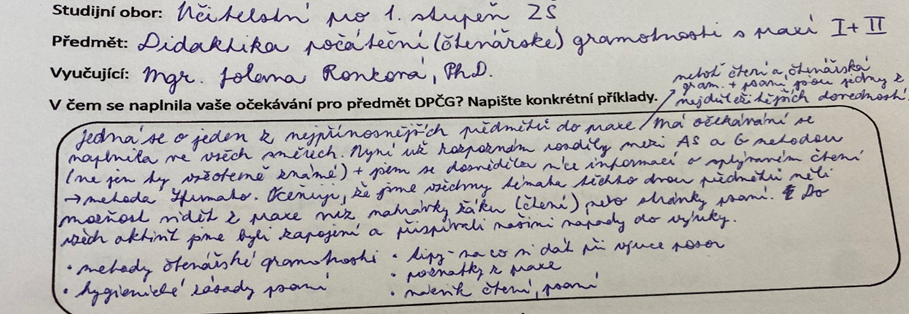 Studijní obor: Učitelství pro 1. stupeň ZŠ
Předmět: Didaktika počáteční (čtenářské) gramotnosti s praxí I + II
Vyučující: Mgr. Jolana Ronková, Ph.D.
neboť čtení a čtenářská
gram. + psaní jsou jedny z
nejdůležitějších dovedností.
V čem se naplnila vaše očekávání pro předmět DPČG? Napište konkrétní příklady.
Jedná se o jeden z nejpřínosnějších předmětů do praxe / Má očekávání se
naplnila ve všech směrech. Nyní už rozpoznám rozdíly mezi AS a G metodou
(ne jen ty všeobecně známé) + jsem se dozvěděla více informací o splývavém čtení
→ metoda Sfumato. Oceňuji, že jsme všechny témata těchto dvou předmětů měli
možnost vidět z praxe viz nahrávky žáků (čtení) nebo stránky psaní. Do
všech aktivit jsme byli zapojení a přispívali našimi nápady do výuky.
• metody čtenářské gramotnosti • tipy - na co si dát při výuce pozor
• poznatky z praxe
• hygienické zásady psaní • nácvik čtení, psaní